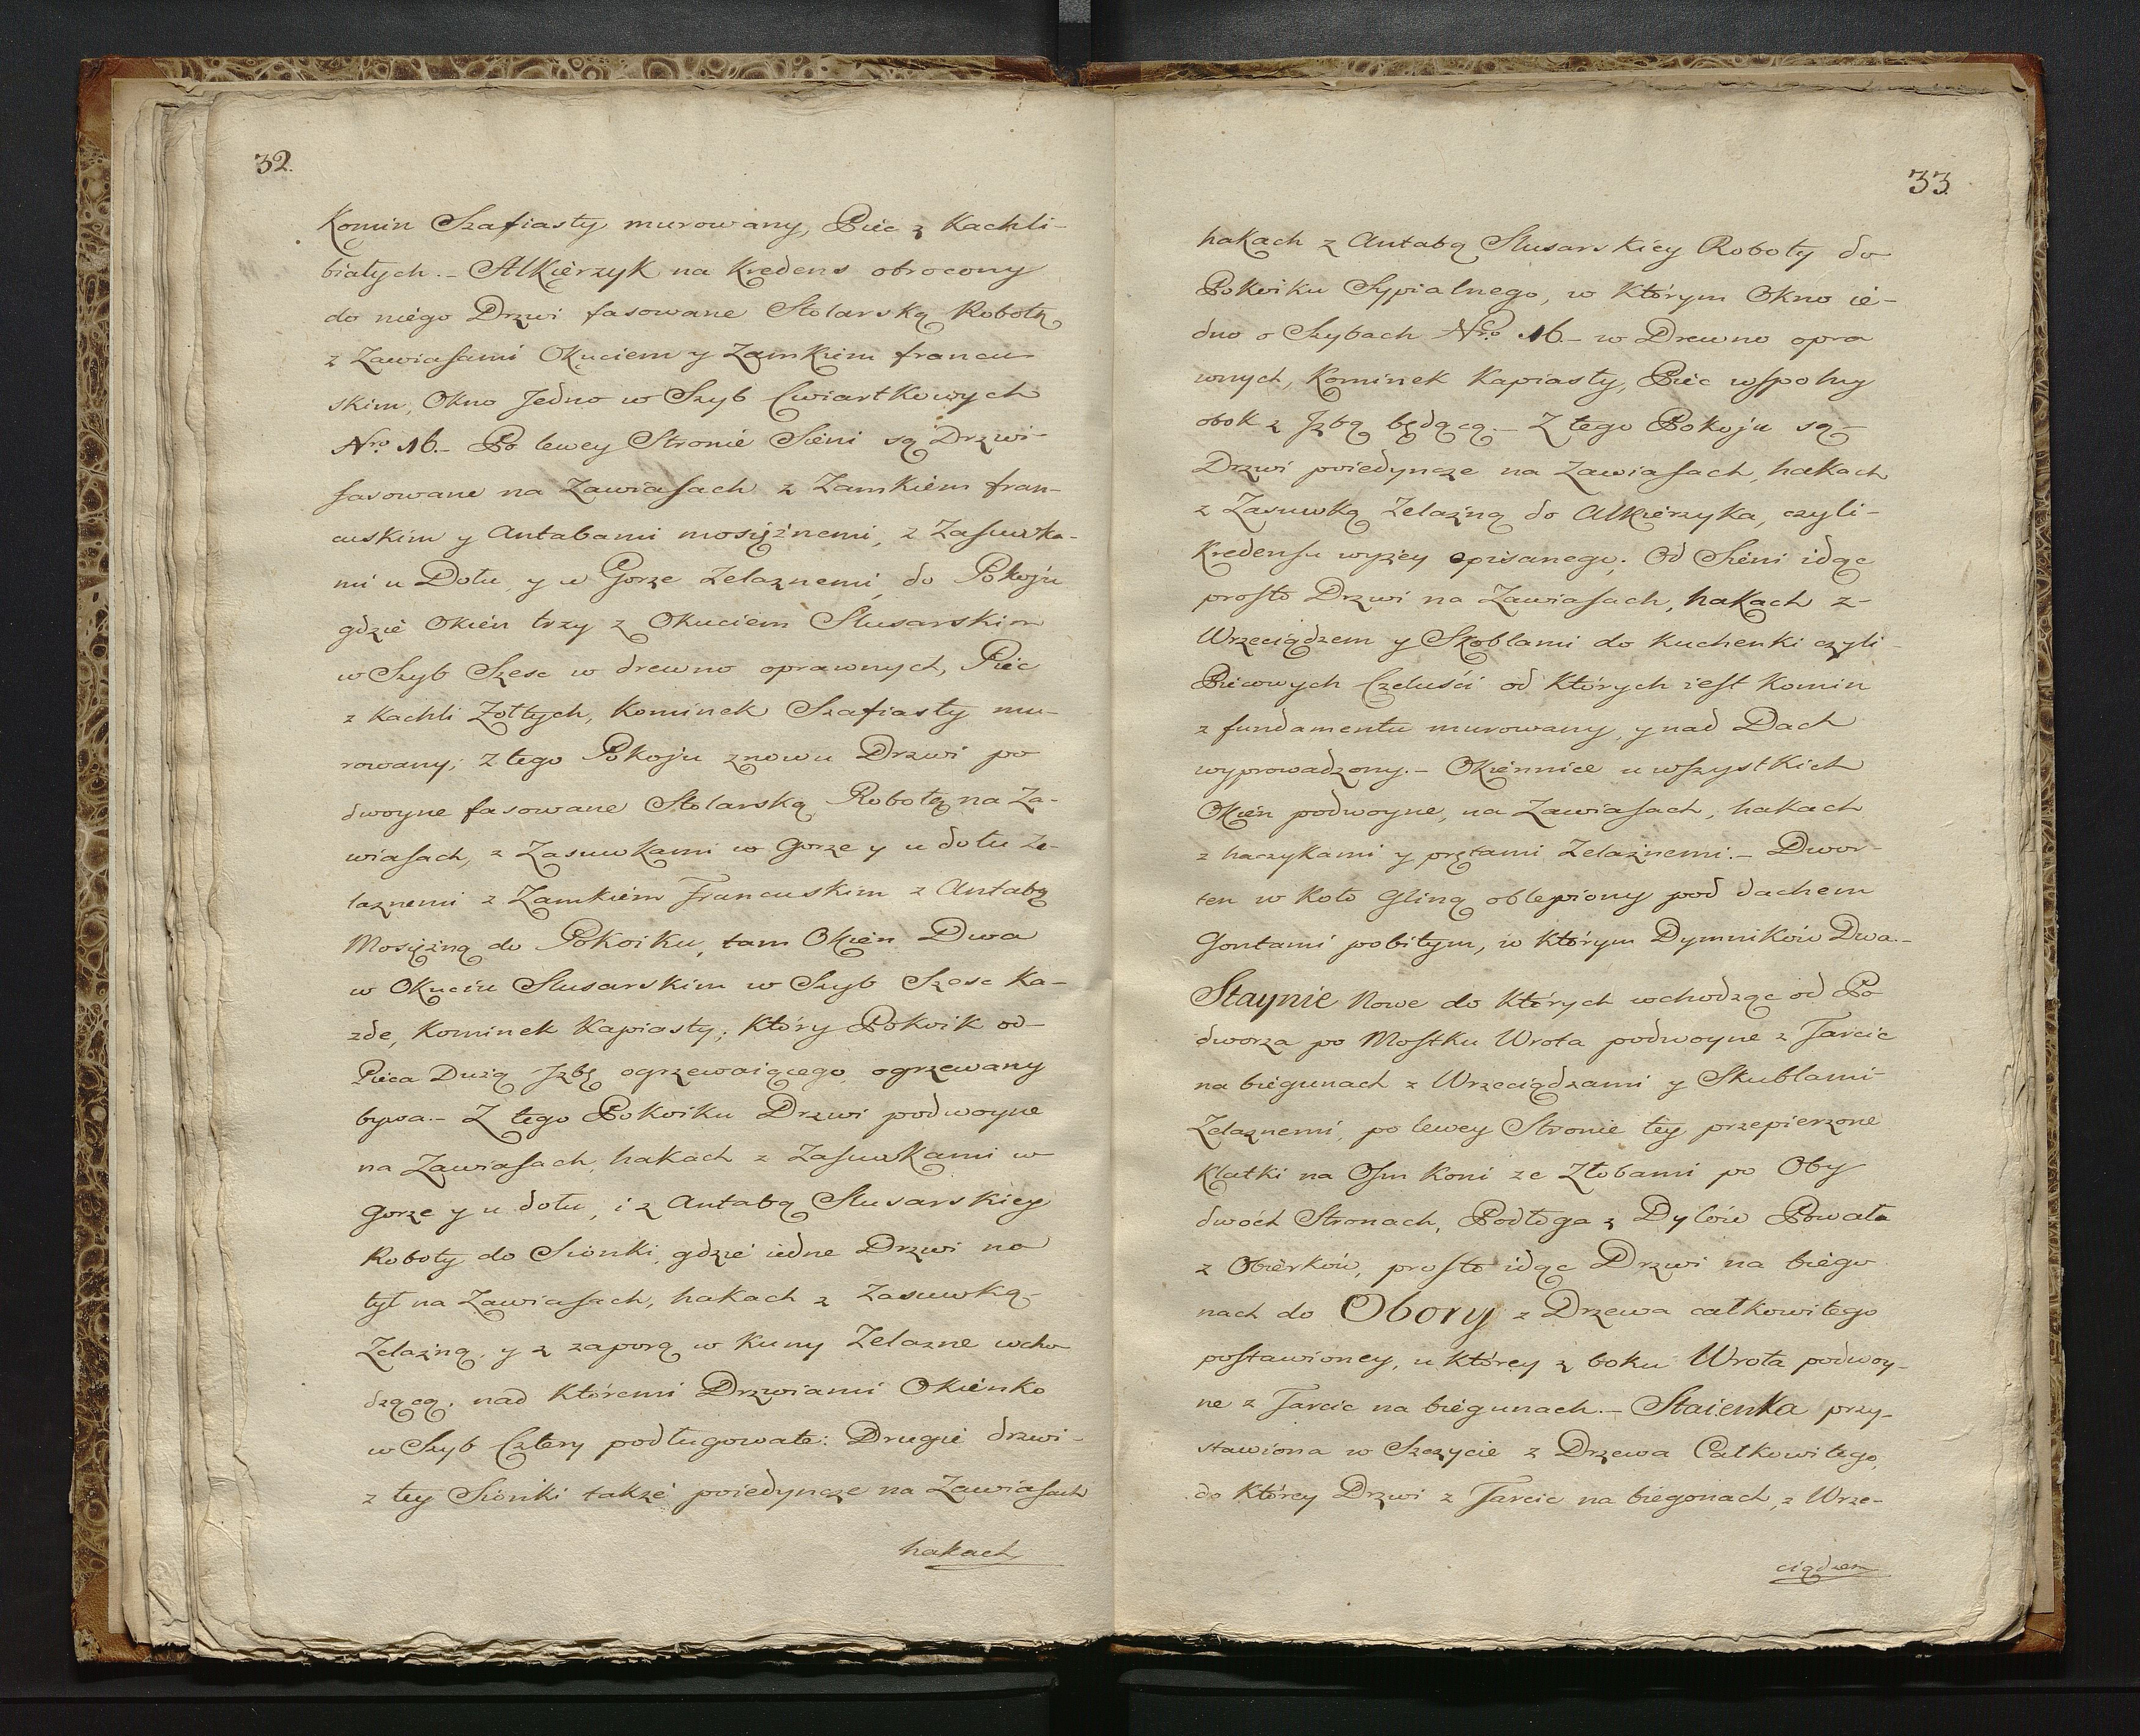 32.
Komin Szafiasty murowany, Piec z Kachli-
białych.- Alkierzyk na Kredens obrocony
do niego Drzwi fasowane Stolarską Robotą
z Zawiasami Okuciem y Zamkiem francu-
skim, Okno Jedno w Szyb Cwiartkowych
Nro 16.- Po lewey Stronie Sieni są Drzwi-
fasowane na Zawiasach z Zamkiem fran-
cuskim y Antabami mosiężnemi, z Zasuwka-
mi u Dołu, y w Gorze Zelaznemi, do Pokoju
gdzie Okien trzy z Okuciem Slusarskim
w Szyb Szesc w drewno oprawnych, Piec
z Kachli Zołtych, Kominek Szafiasty mu-
rowany; z tego Pokoju znowu Drzwi po
dwoyne fasowane Stolarską Robotą na Za-
wiasach, z Zasuwkami w Gorze y u dołu Ze-
laznemi z Zamkiem Francuskim z Antabą
Mosiężną do Pokoiku, tam Okien Dwa
w Okuciu Slusarskim w Szyb Szesc Ka-
zde, Kominek Kapiasty, Który Pokoik od-
Pieca Dużą Jzbę ogrzewaiącego, ogrzewany
bywa.- Z tego Pokoiku Drzwi podwoyne
na Zawiasach, hakach z Zasuwkami w
Gorze y u dołu, i z Antabą Slusarskiey
Roboty do Sionki, gdzie iedne Drzwi na
tył na Zawiasach, hakach z Zasuwką-
Zelazną, y z zaporą w Kuny Zelazne wcho
dzącą, nad Któremi Drzwiami Okienko
w Szyb Cztery podługowate: Drugie drzwi-
z tey Sionki także poiedyncze na Zawiasach
hakach
33
hakach z Antabą Slusarskiey Roboty do
Pokoiku Sypialnego, w Którym Okno ie-
dno o Szybach Nro 16.- w Drewno opra
wnych, Kominek Kapiasty, Piec wspolny
obok z Jzbą będącą.- Z tego Pokoju są-
Drzwi poiedyncze na Zawiasach, hakach
z Zasuwką Zelazną do Alkierzyka, czyli-
Kredensu wyżey opisanego. Od Sieni idąc
prosto Drzwi na Zawiasach, hakach z-
Wrzeciądzem y Skoblami do Kuchenki czyli-
Piecowych Czeluści od Których iest Komin
z fundamentu murowany, y nad Dach
wyprowadzony.- Okiennice u wszystkich
Okien podwoyne, na Zawiasach, hakach
z haczykami y prętami Zelaznemi.- Dwor-
ten w Koło Gliną oblepiony pod dachem
Gontami pobitym, w Którym Dymników Dwa.-
Staynie Nowe do Których wchodząc od Po
dworza po Mostku Wrota podwoyne z Tarcic
na biegunach z Wrzeciądzami y Skublami-
Zelaznemi, po lewey Stronie tey przepierzone
Klatki na Osm Koni ze Złobami po Oby
dwóch Stronach, Podłoga z Dylów Powała
z Obierków, prosto idąc Drzwi na biego
nach do Obory z Drzewa całkowitego
postawioney, u Którey z boku Wrota podwoy-
ne z Tarcic na biegunach.- Staienka przy-
stawiona w Szczycie z Drzewa Całkowitego,
do Którey Drzwi z Tarcic na biegonach, z Wrze-
ciądzem